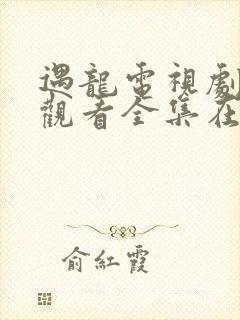 遇龍電視劇
觀看全集在
俞紅霞